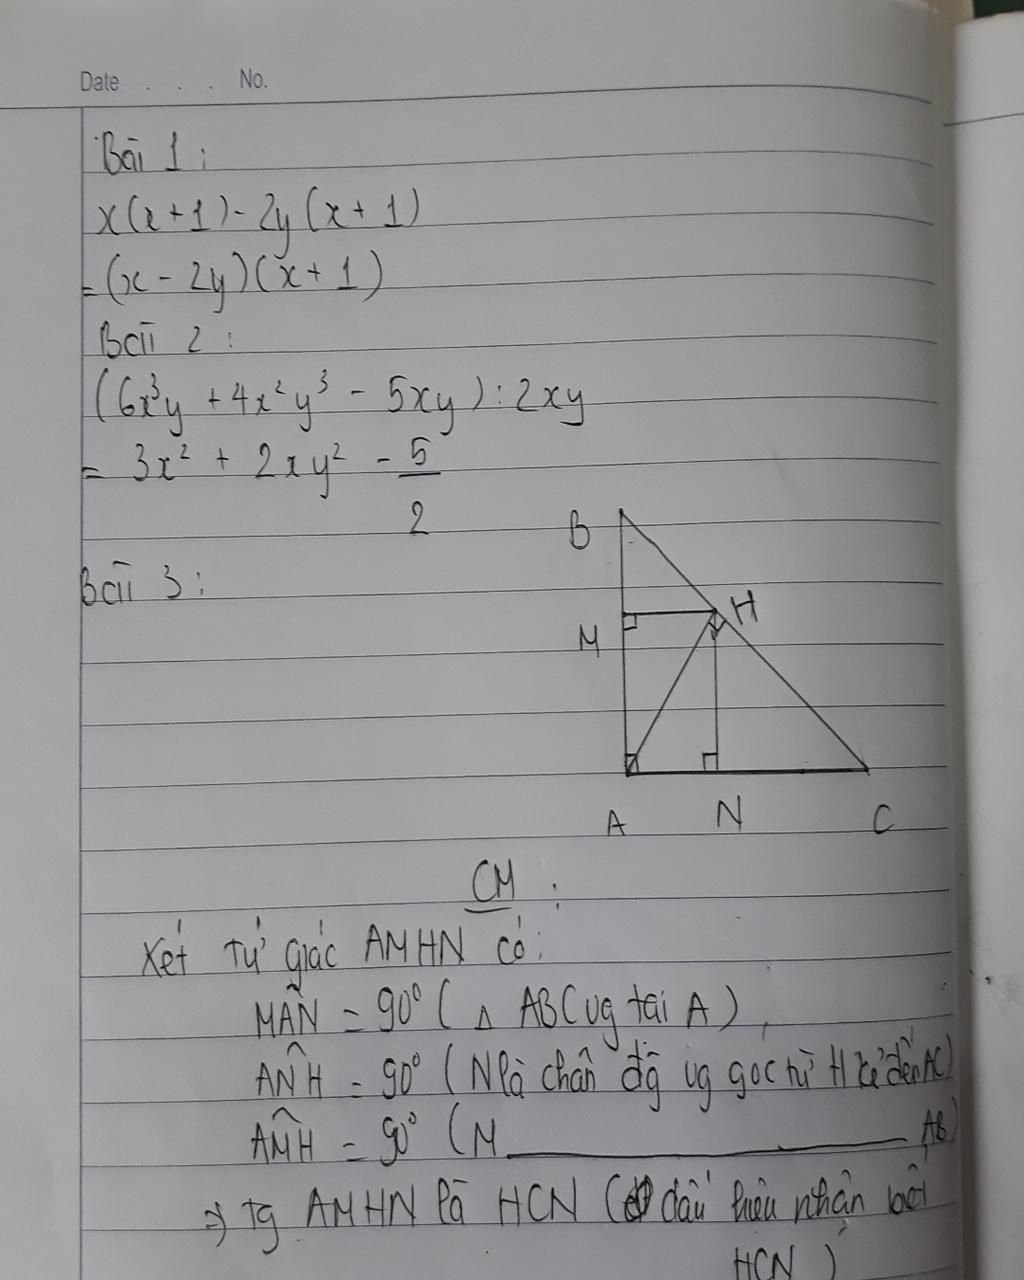 Date . . . . No.
Bài 1:
x(x+1) - 2y(x+1)
= (x - 2y)(x+1)
Bài 2:
(6x³y + 4x²y³ - 5xy) : 2xy
= 3x² + 2xy² - 5/2
Bài 3:
B
H
M
A N C
CM:
Xét tứ giác AMHN có:
MÂN = 90° (△ ABC vg tại A),
AN̂H = 90° (N là chân đg vg góc từ H kẻ đến AC)
AM̂H = 90° (M ______ AB)
=> tg AMHN là HCN (dấu hiệu nhận biết
HCN)